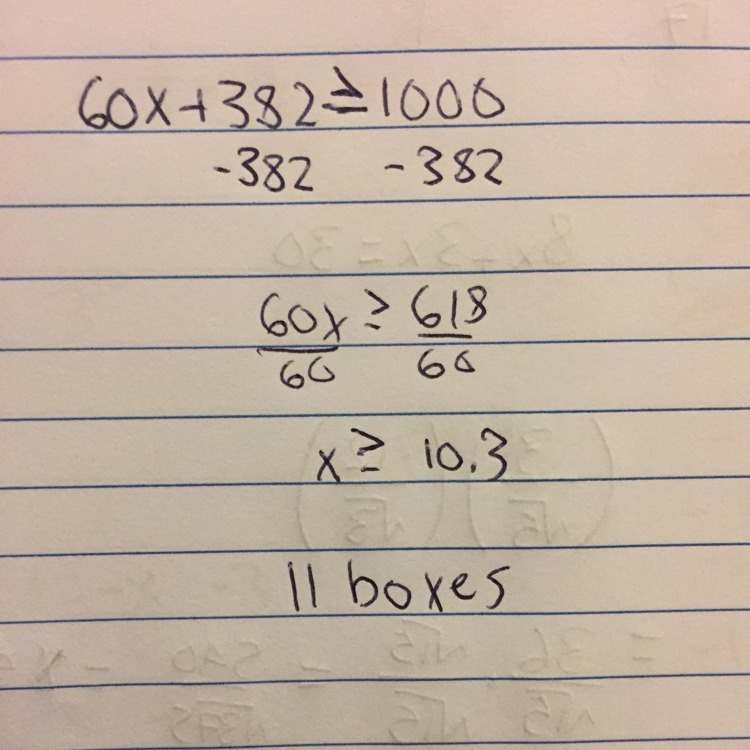 60x+382≥1000
-382 -382
60x ≥ 618
60 60
x ≥ 10.3
11 boxes